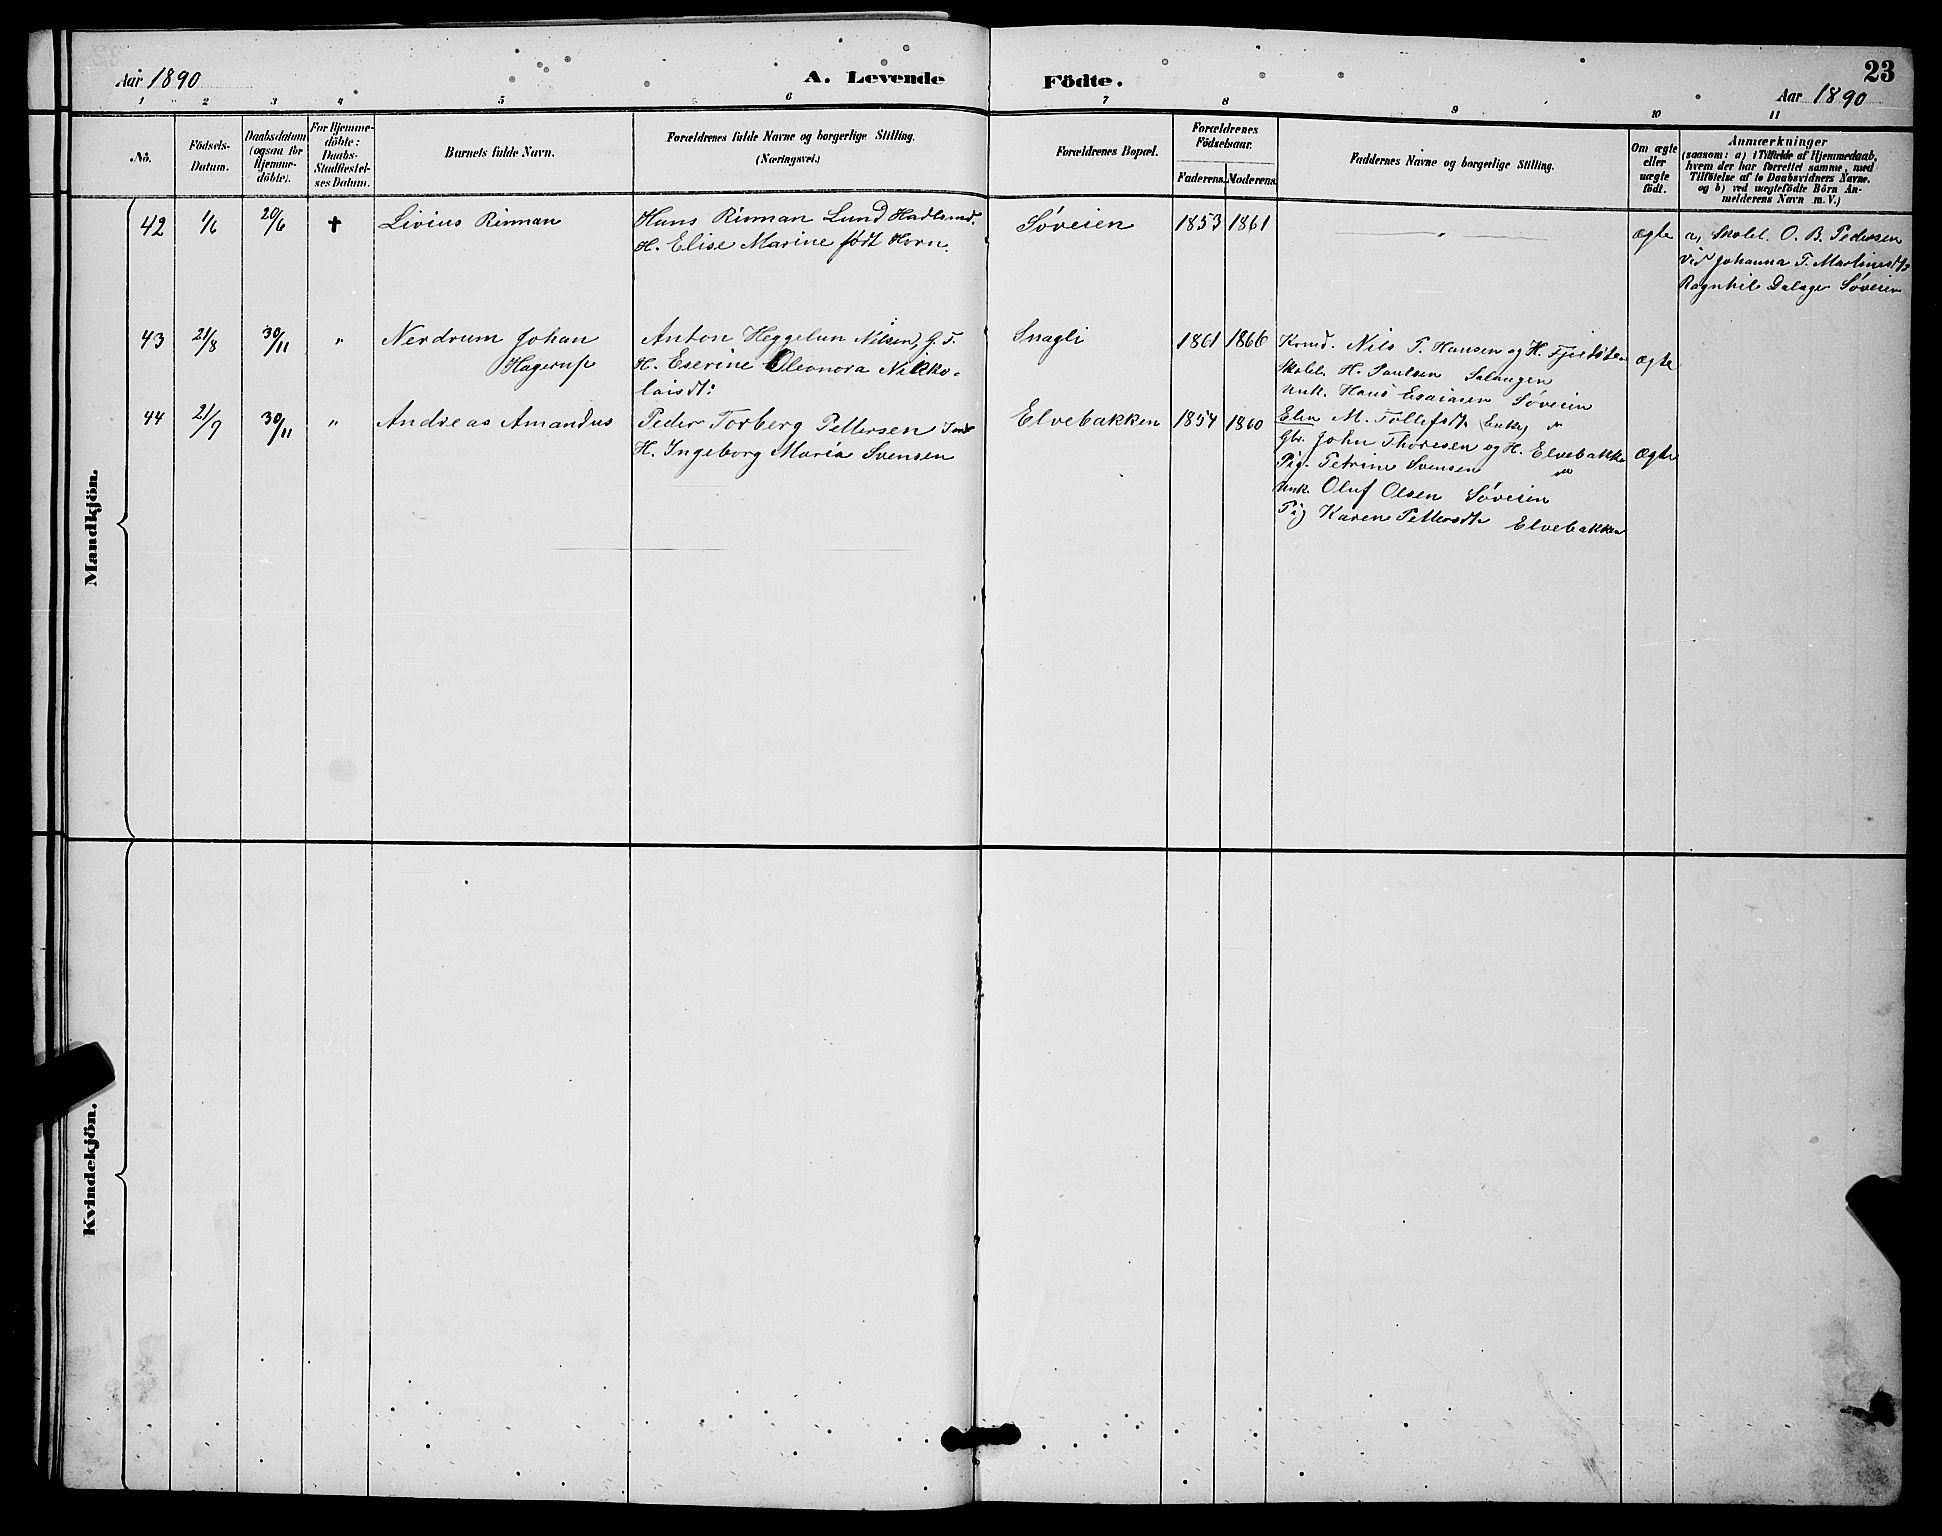 23
Aar 1890
A. Levende
Födte.
Aar 1890
1 2 3 4 5 6 7 8 9 10 11
No.
Födsels-
Datum.
Daabsdatum
(ogsaa for
Hjemme-
döbte).
For Hjemme-
döbte:
Daabs-
Stadfæstel-
ses Datum.
Barnets fulde Navn.
Forældrenes fulde Navne og borgerlige Stilling.
(Næringsvei.)
Forældrenes Bopæl.
Forældrenes
Födselsaar.
Faderens. Moderens.
Faddernes Navne og borgerlige Stilling.
Om ægte
eller
uægte
födt.
Anmærkninger
(saasom: a) i Tilfælde af Hjemmedaab,
hvem der har forrettet samme, med
Tilföielse af to Daabsvidners Navne.
og b) ved uægtefödte Börn An-
melderens Navn m. V.)
Mandkjön.
42 1/6 20/6 † Livius Rinman
Hans Rinman Lund
H. Elise Marine født Horn.
Søveien 1853 1861 " ægte
a, Skolel. O. B. Pedersen
Johanna T.
Ragnhil Søveien
43 21/8 30/11 " Nerdrum Johan
Hagerup
Anton Heggelun Nilsen, G. F.
H. Eserine Oleonora Nikko-
laisdt:
Snagli 1861 1866
Nils P. Hansen og H.
Skolel. H. Paulsen Salangen
Unk. Hans Esaiasen Søveien
ægte
44 21/9 30/11 " Andreas Amandus
Peder Torberg Pettersen
H. Ingeborg Maria Svensen
Elvebakken 1854 1860
M. Enke
Gbr. John Thoresen og H. Elvebakke
Pig. Petrine Svensen
Unk. Oluf Olsen Søveien
Pig Karen Pettersdt Elvebakken
Ægte
Kvindekjön.